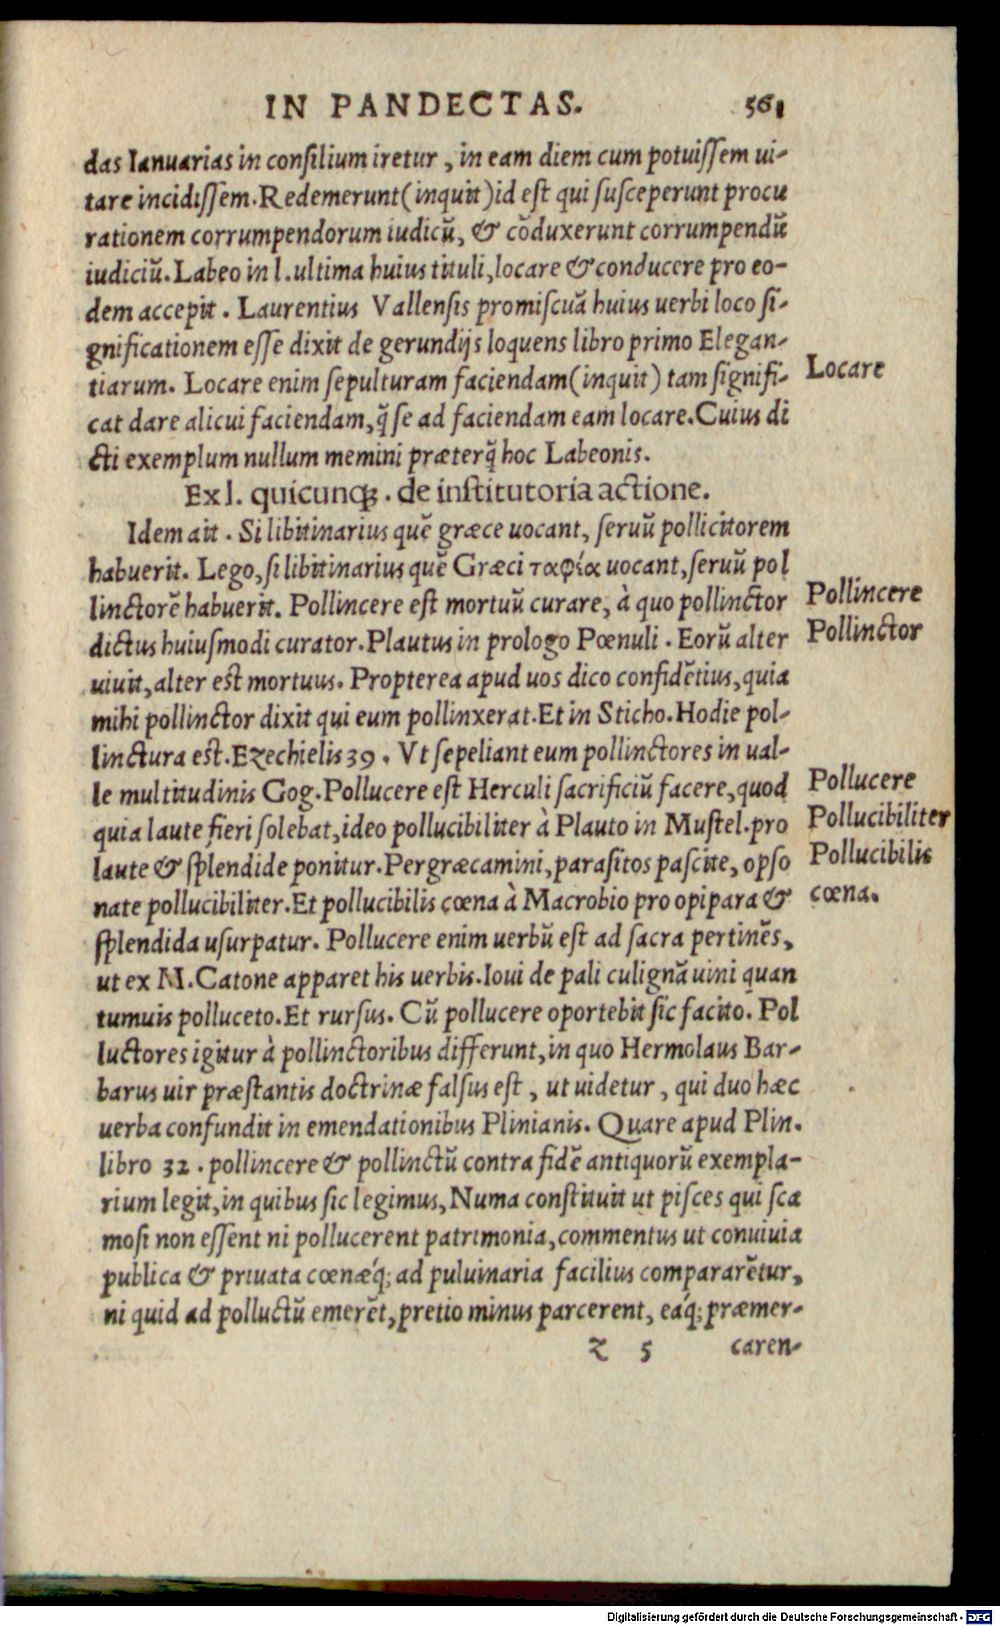 IN PANDECTAS. 561
das Ianuarias in consilium iretur, in eam diem cum potuissem ui-
tare incidissem. Redemerunt (inquit) id est qui susceperunt procu
rationem corrumpendorum iudicũ, & cõduxerunt corrumpendũ
iudiciũ. Labeo in l. ultima huius tituli, locare & conducere pro eo-
dem accepit. Laurentius Vallensis promiscuã huius uerbi loco si-
gnificationem esse dixit de gerundijs loquens libro primo Elegan-
tiarum. Locare enim sepulturam faciendam (inquit) tam signifi-
Locare
cat dare alicui faciendam, q̃ se ad faciendam eam locare. Cuius di
cti exemplum nullum memini præterq̃ hoc Labeonis.
Ex l. quicunqꝫ. de institutoria actione.
Idem ait. Si libitinarius quẽ græce uocant, seruũ pollicitorem
habuerit. Lego, si libitinarius quẽ Græci ταφία uocant, seruũ pol
linctorẽ habuerit. Pollincere est mortuũ curare, à quo pollinctor
Pollincere
dictus huiusmodi curator. Plautus in prologo Pœnuli. Eorũ alter
Pollinctor
uiuit, alter est mortuus. Propterea apud uos dico confidẽtius, quia
mihi pollinctor dixit qui eum pollinxerat. Et in Sticho. Hodie pol-
linctura est. Ezechielis 39. Vt sepeliant eum pollinctores in ual-
le multitudinis Gog. Pollucere est Herculi sacrificiũ facere, quod
Pollucere
quia laute fieri solebat, ideo pollucibiliter à Plauto in Mustel. pro
Pollucibiliter
laute & splendide ponitur. Pergræcamini, parasitos pascite, opso
Pollucibilis
nate pollucibiliter. Et pollucibilis cœna à Macrobio pro opipara &
cœna.
splendida usurpatur. Pollucere enim uerbũ est ad sacra pertinẽs,
ut ex M. Catone apparet his uerbis. Ioui de pali culignã uini quan
tumuis polluceto. Et rursus. Cũ pollucere oportebit sic facito. Pol
luctores igitur à pollinctoribus differunt, in quo Hermolaus Bar-
barus uir præstantis doctrinæ falsus est, ut uidetur, qui duo hæc
uerba confundit in emendationibus Plinianis. Quare apud Plin.
libro 32. pollincere & pollinctũ contra fidẽ antiquorũ exempla-
rium legit, in quibus sic legimus, Numa constituit ut pisces qui sca
mosi non essent ni pollucerent patrimonia, commentus ut conuiuia
publica & priuata cœnæq́; ad puluinaria facilius compararẽtur,
ni quid ad polluctũ emerẽt, pretio minus parcerent, eáq́; præmer-
z 5 caren-
Digitalisierung gefördert durch die Deutsche Forschungsgemeinschaft - DFG